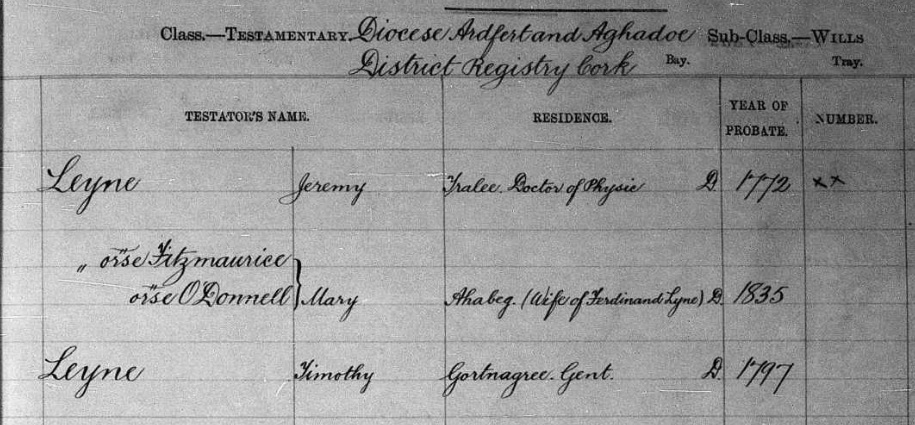 Class.—Testamentary. Diocese Ardfert and Aghadoe Sub-Class.—Wills
District Registry Cork Bay. Tray.
TESTATOR'S NAME. RESIDENCE. YEAR OF PROBATE. NUMBER.
Leyne Jeremy Tralee. Doctor of Physic D 1772 xx
„ orse Fitzmaurice
orse O'Donnell } Mary Ahabeg. (Wife of Ferdinand Lyne) D 1835
Leyne Timothy Gortnagree. Gent. D 1797